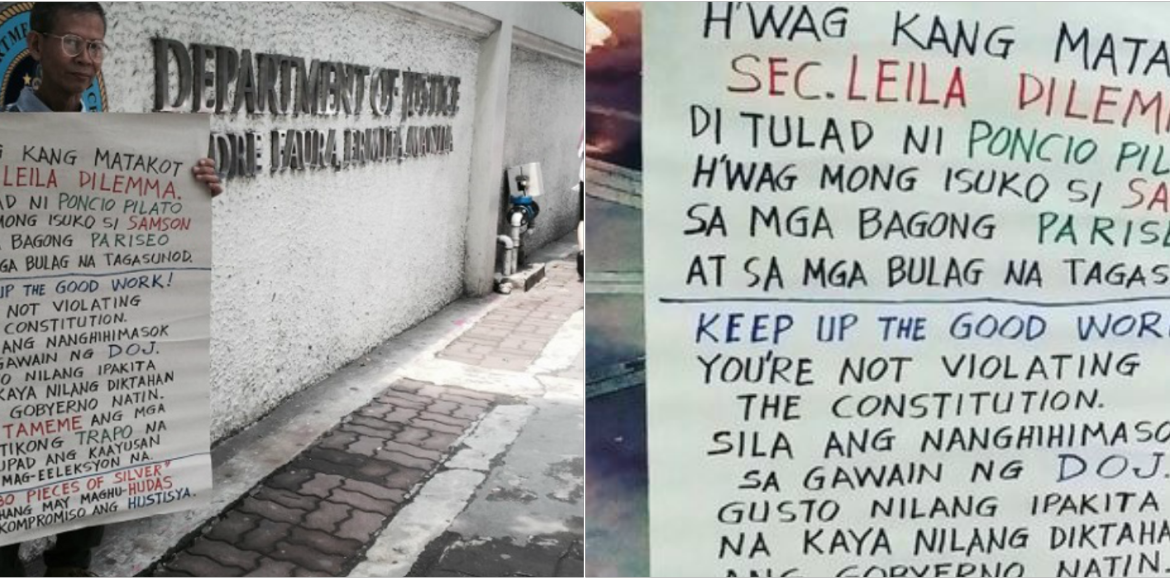 DEPARTMENT OF JUSTICE
PADRE FAURA, ERMITA, MANILA
KANG MATAKOT
LEILA DILEMMA.
NI PONCIO PILATO
MONG ISUKO SI SAMSON
BAGONG PARISEO
BULAG NA TAGASUNOD.
UP THE GOOD WORK!
NOT VIOLATING
CONSTITUTION.
ANG NANGHIHIMASOK
GAWAIN NG DOJ.
NILANG IPAKITA
KAYA NILANG DIKTAHAN
GOBYERNO NATIN.
TAMEME ANG MGA
TRAPO NA
ANG KAAYUSAN
MAG-EELEKSYON NA.
30 PIECES OF SILVER"
MAY MAGHU-HUDAS
KOMPROMISO ANG HUSTISYA.
H'WAG KANG MATA
SEC. LEILA DILEM
DI TULAD NI PONCIO PIL
H'WAG MONG ISUKO SI SA
SA MGA BAGONG PARISE
AT SA MGA BULAG NA TAGAS
KEEP UP THE GOOD WOR
YOU'RE NOT VIOLATING
THE CONSTITUTION.
SILA ANG NANGHIHIMASO
SA GAWAIN NG DOJ
GUSTO NILANG IPAKITA
NA KAYA NILANG DIKTAHA
ANG GOBYERNO NATIN.